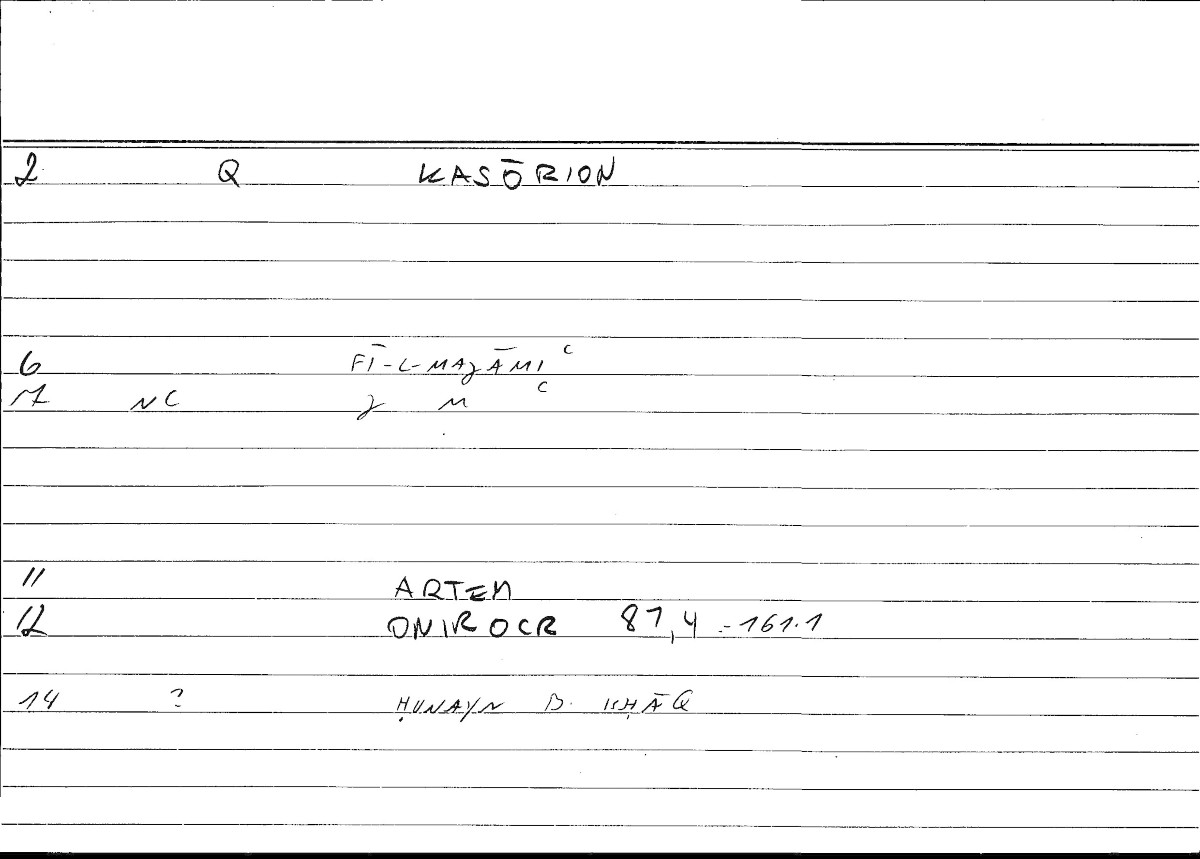 2 Q KASŌRION
6 FĪ-L-MAJĀMIʿ
7 NC J M ʿ
11 ARTEM
12 ONIROCR 87,4 - 161.1
14 ? ḤUNAYN B. ISḤĀQ